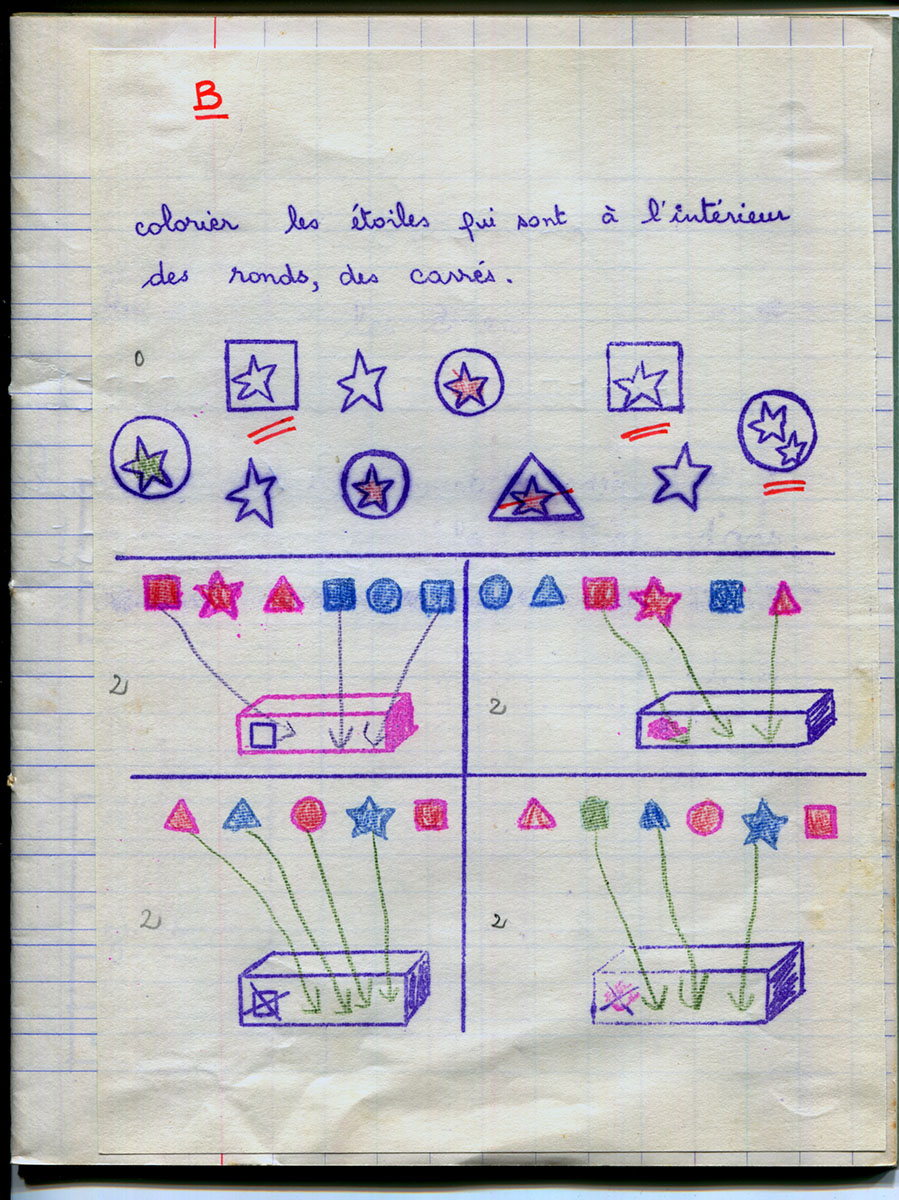 B
colorier les étoiles qui sont à l'intérieur
des ronds, des carrés.
0
2
2
2
2